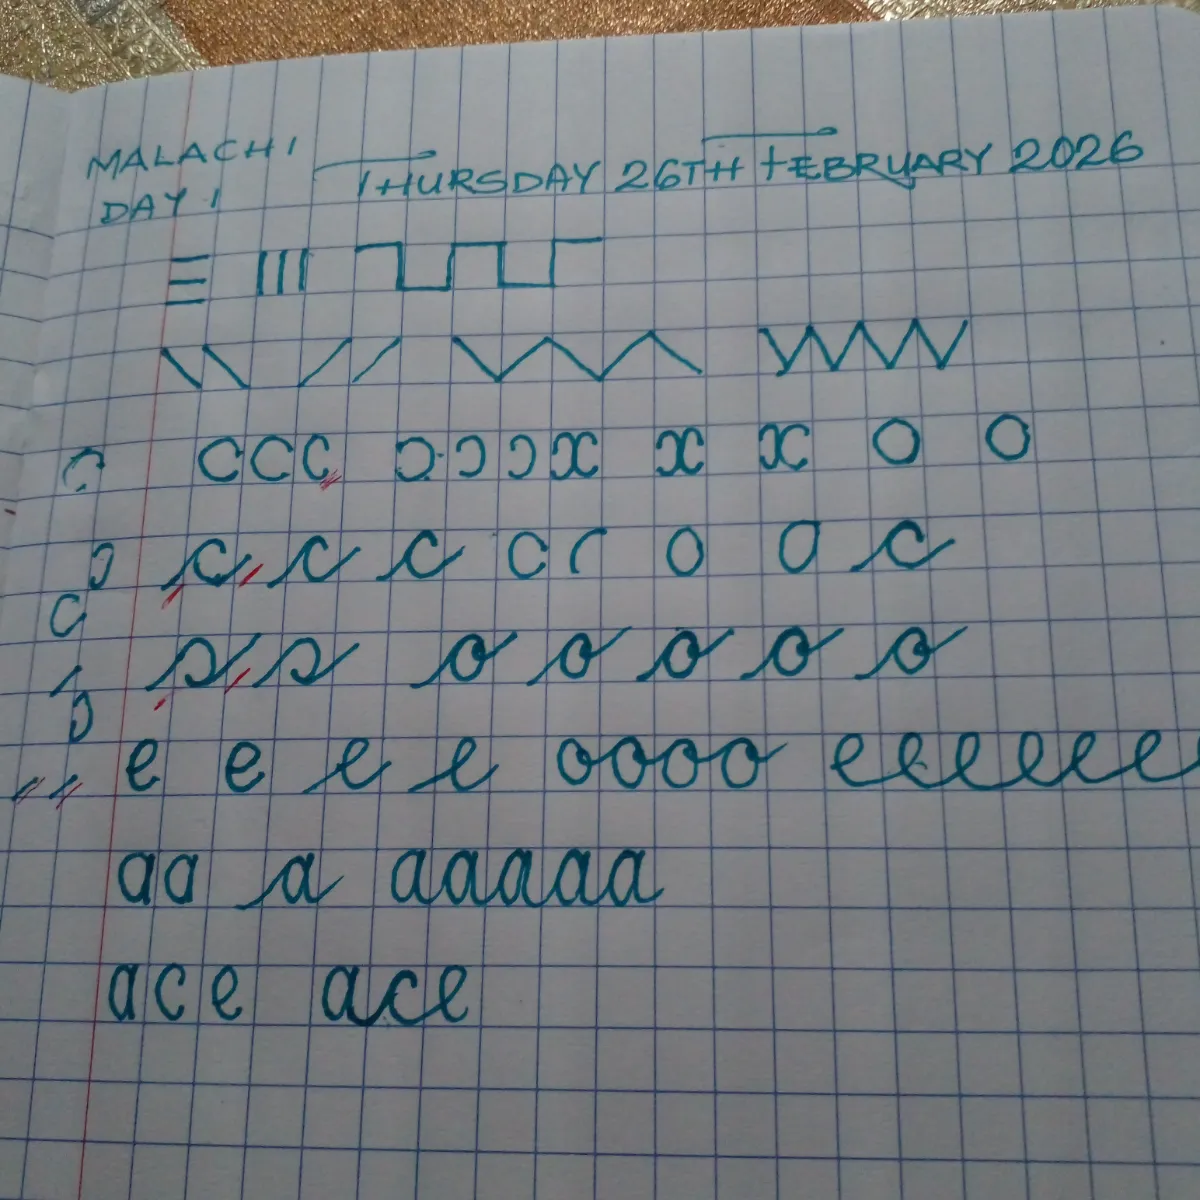 MALACHI
THURSDAY 26TH FEBRUARY 2026
DAY 1
c c c ɔ ɔ ɔ x x x o o
c c c c o o c
o o o o o
e e e e oooo eeeeee
aa a aaaaa
ace ace